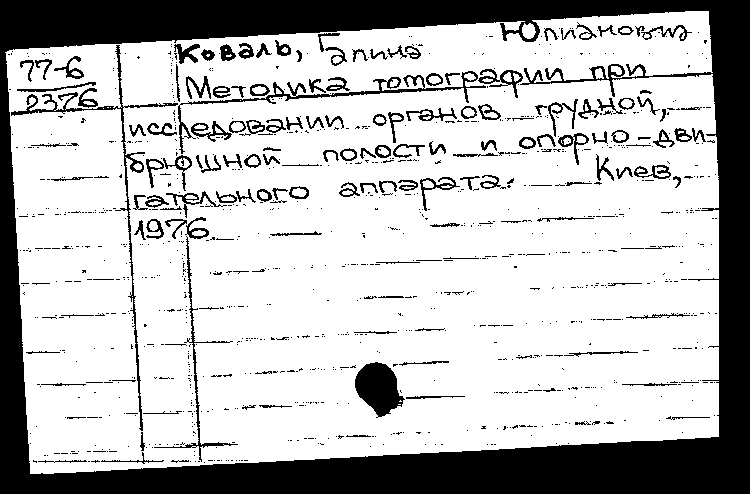 77-6
2376
Коваль, Галина Юлиановна
Методика томографии при
исследовании органов грудной,
брюшной полости и опорно-дви-
гательного аппарата. Киев,
1976